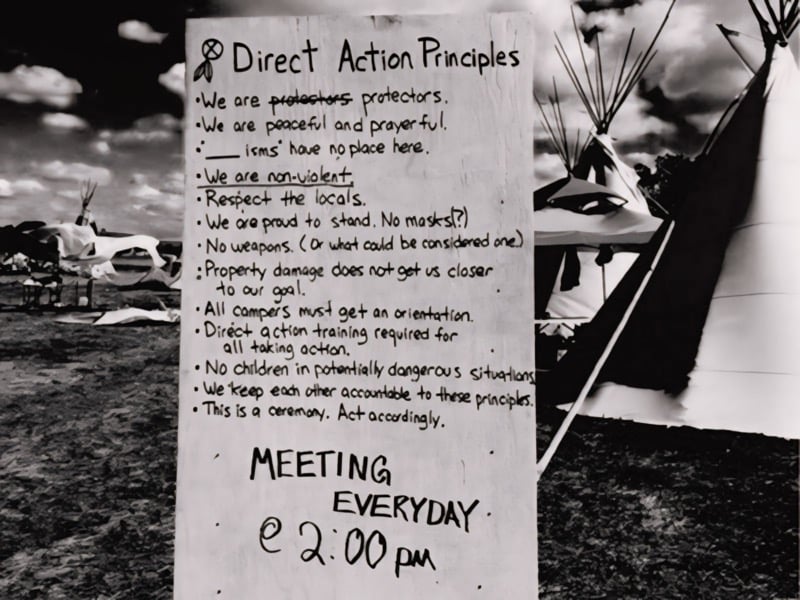 Direct Action Principles
• We are protestors protectors.
• We are peaceful and prayerful.
• "___ isms" have no place here.
• We are non-violent.
• Respect the locals.
• We are proud to stand. No masks(?)
• No weapons. (Or what could be considered one)
• Property damage does not get us closer
to our goal.
• All campers must get an orientation.
• Direct action training required for
all taking action.
• No children in potentially dangerous situations
• We keep each other accountable to these principles.
• This is a ceremony. Act accordingly.
MEETING
EVERYDAY
@ 2:00 pm